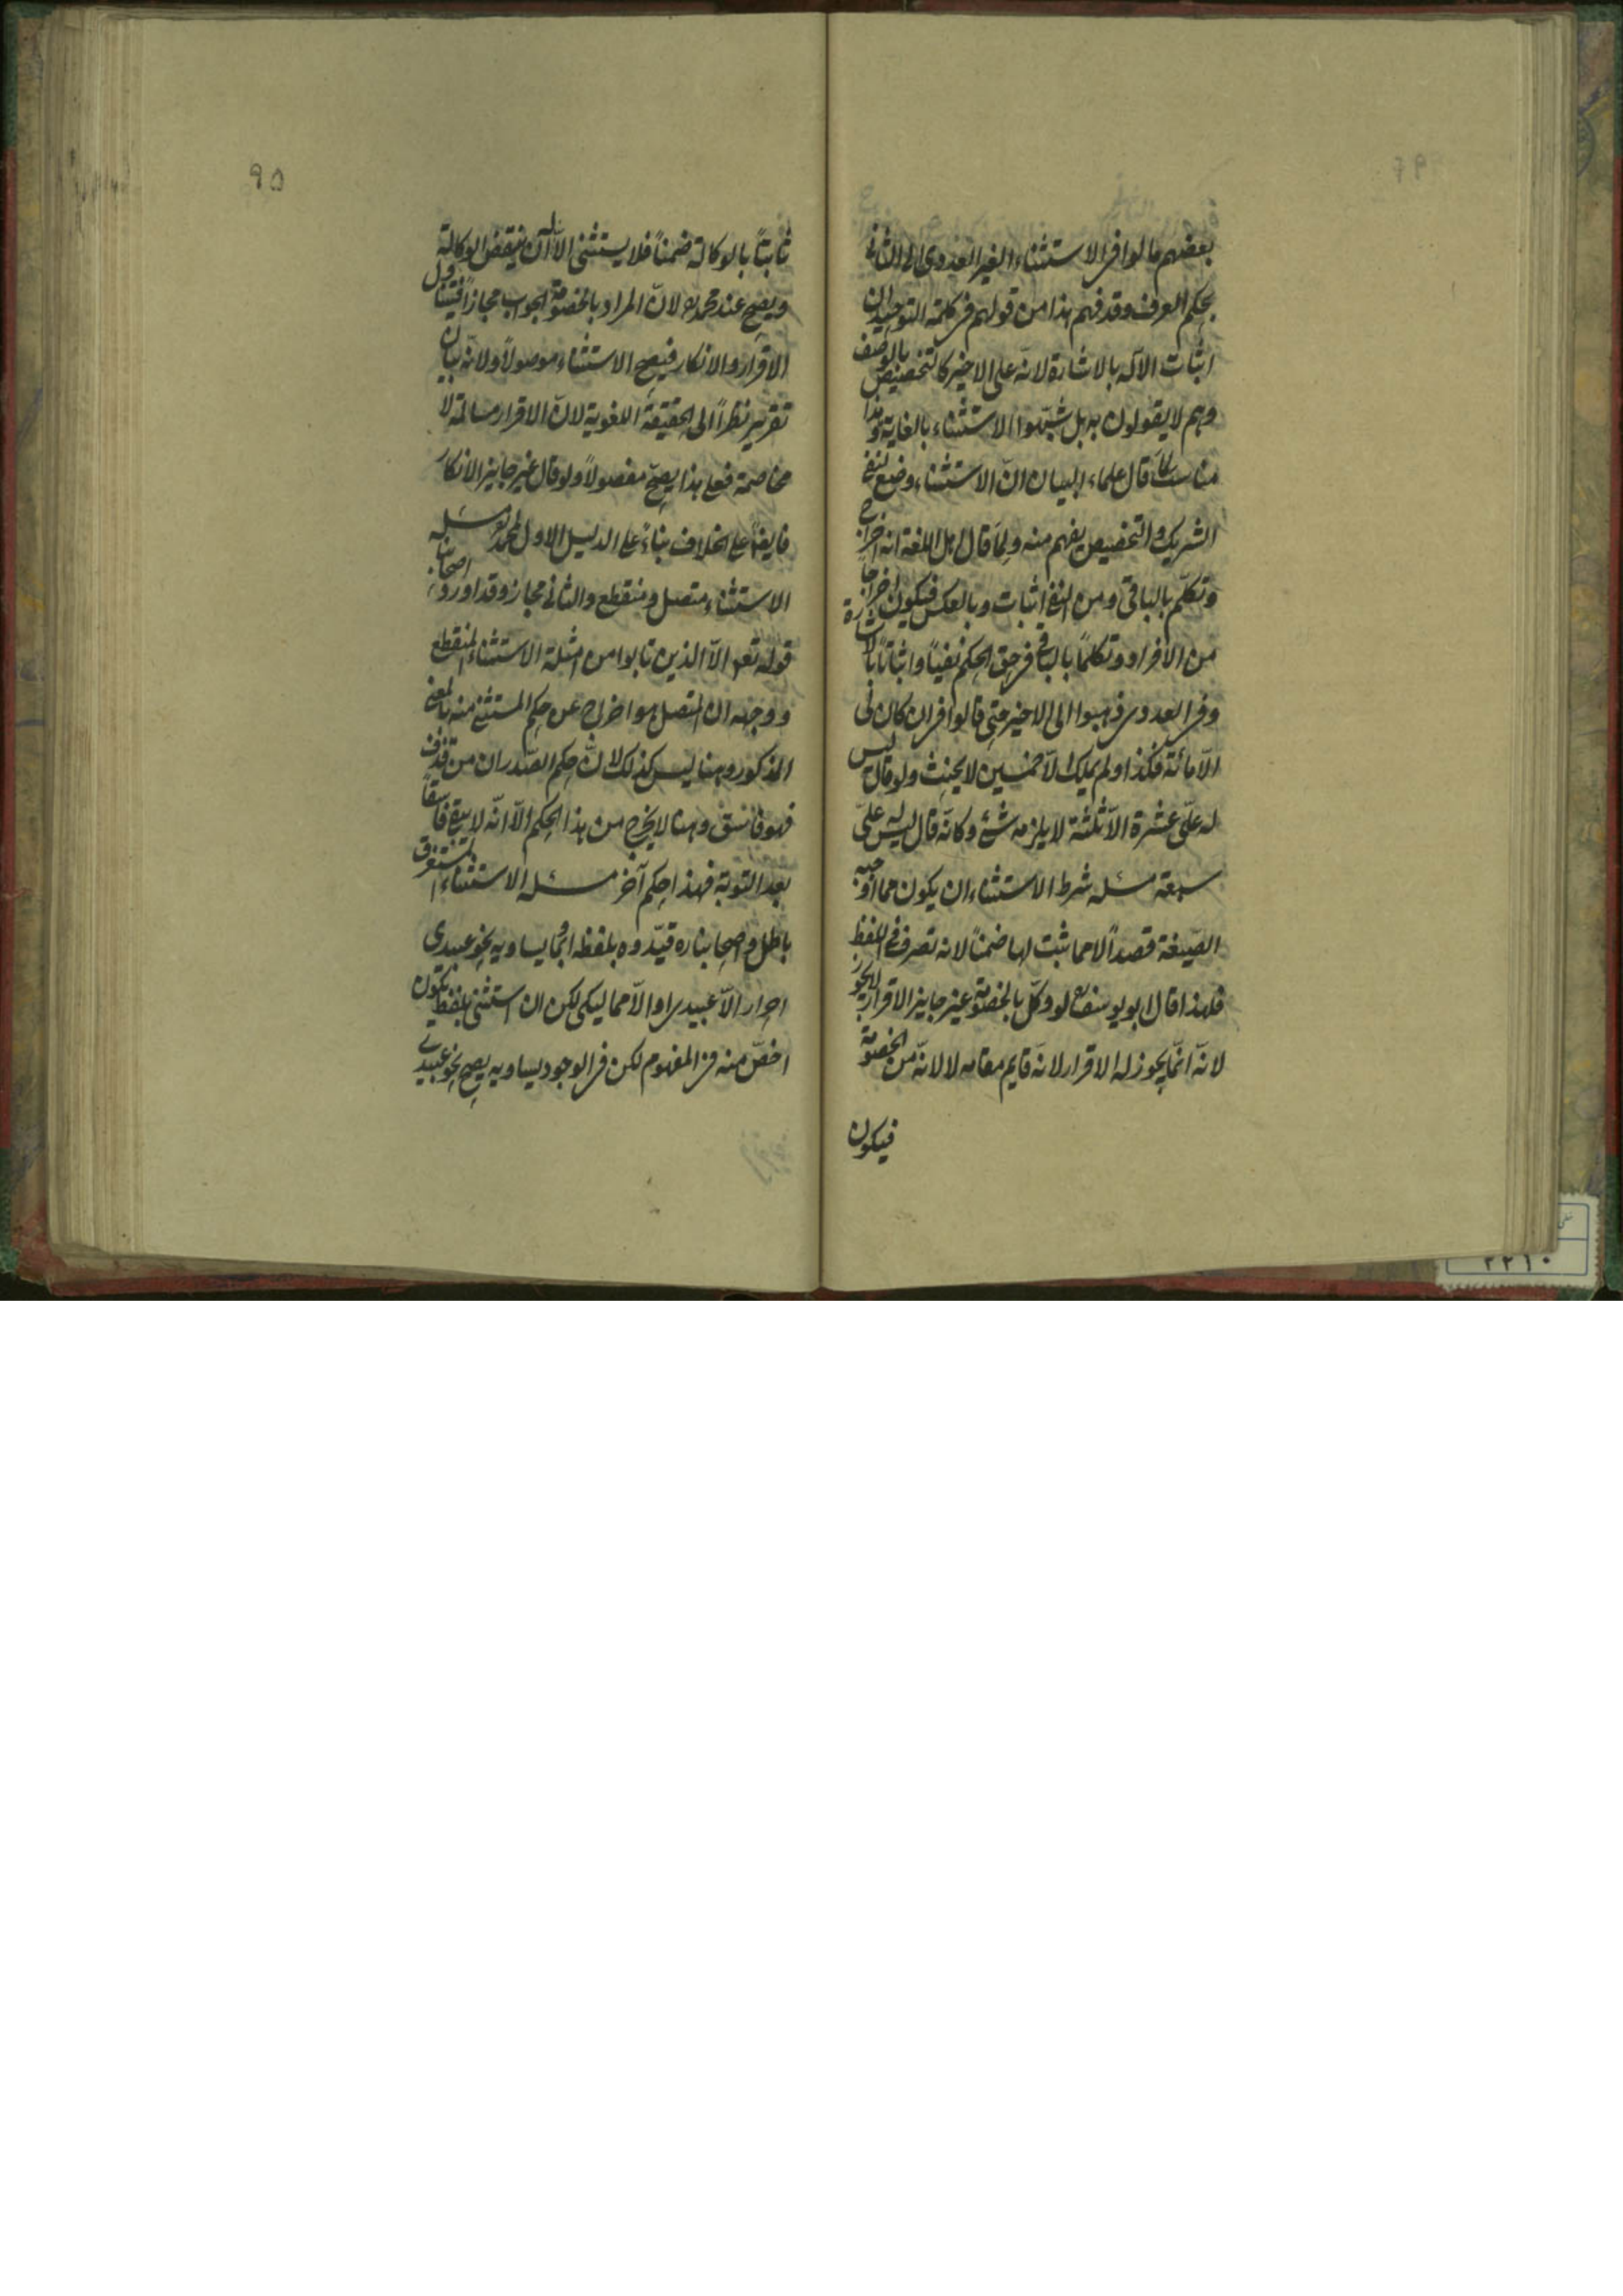 بعضهم مالوا فى الاستثناء الغير العددى الى الثانى
بحكم العرف وقد فهم هذا من قولهم فى كلمة التوحيد ان
اثبات الاله بالاشارة لانه على الاخير كالتخصيص بالوصف
وهم لا يقولون به بل شبّهوا الاستثناء بالغاية وهذا
مناسب لما قال علماء البيان انّ الاستثناء وضع لنفى
الشريك والتخصيص يفهم منه ولما قال اهل اللغة انه اخراج
وتكلّم بالباقى ومن النفى اثبات وبالعكس فيكون اخراجا
من الافراد وتكلما بالباقى فى حق الحكم نفيا واثباتا بالاشارة
وفى العددى ذهبوا الى الاخير حتى قالوا فى ان كان لى
الّا مائة فكذا ولم يملك الّا خمسين لا يحنث ولو قال ليس
له علىّ عشرة الّا ثلثة لا يلزمه شئ وكانّه قال ليس له علىّ
سبعة مسئله شرط الاستثناء ان يكون مما اوجبه
الصّيغة قصداً لا مما ثبت لها ضمناً لانه تصرف فى اللفظ
فلهذا قال ابو يوسف لو وكّل بالخصومة غير جايز الاقرار لا يجوز
لانّه انّما يجوز له الاقرار لانّه قايم مقامه لا لانّه من الخصومة
فيكون
٩٥
ثابتاً بالوكالة ضمناً فلا يستثنى الّا ان ينقض الوكالة
ويصح عند محمد لانّ المراد بالخصومة الجواب مجازاً فيتناول
الاقرار والانكار فيصح الاستثناء موصولاً ولانّه بيان
تقرير نظراً الى الحقيقة اللغوية لانّ الاقرار مسالمة لا
مخاصمة فعلى هذا يصحّ مفصولاً ولو قال غير جايز الانكار
فايضاً على الخلاف بناءً على الدليل الاول لمحمد مسئله
الاستثناء متصل ومنقطع والثانى مجاز وقد اورد اصحابنا
قوله تعالى الّا الذين تابوا من امثلة الاستثناء المنقطع
ووجهه ان المتصل هو اخراج عن حكم المستثنى منه بالمعنى
المذكور وهنا ليس كذلك لانّ حكم الصّدر ان من قذف
فهو فاسق وهنا لا يخرج من هذا الحكم الّا انّه لا يبقى فاسقاً
بعد التوبة فهذا حكم آخر مسئله الاستثناء المستغرق
باطل واصحابنا ره قيّدوه بلفظه او بما يساويه نحو عبيدى
احرار الّا عبيدى او الّا مماليكى لكن ان استثنى بلفظ يكون
اخصّ منه فى المفهوم لكن فى الوجود يساويه يصح نحو عبيدى